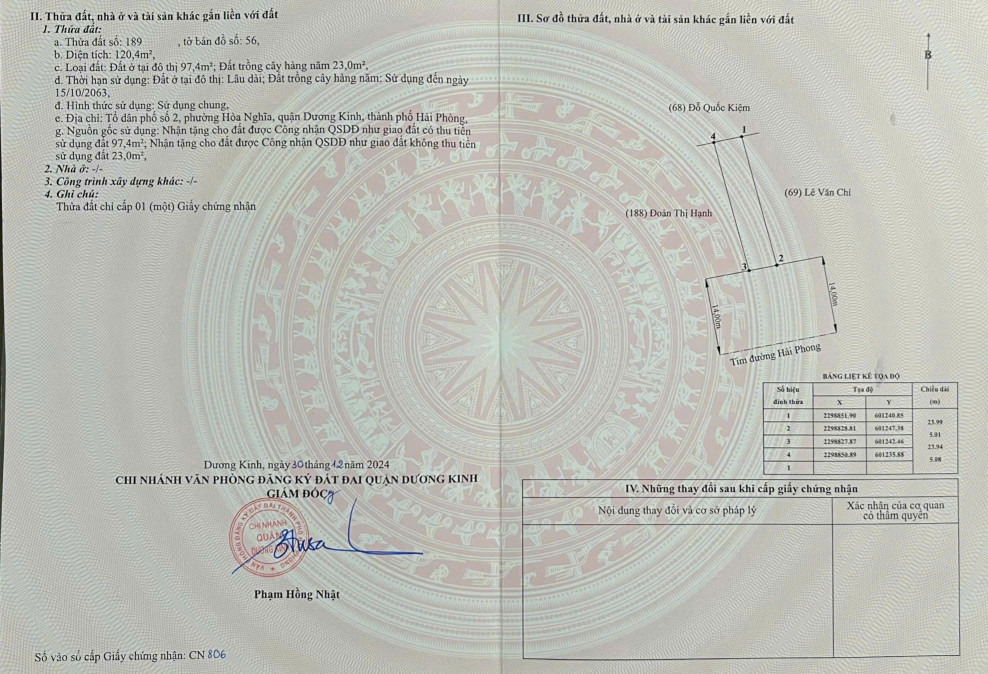 II. Thửa đất, nhà ở và tài sản khác gắn liền với đất
1. Thửa đất:
a. Thửa đất số: 189 , tờ bản đồ số: 56,
b. Diện tích: 120,4m²,
c. Loại đất: Đất ở tại đô thị 97,4m²; Đất trồng cây hàng năm 23,0m²,
d. Thời hạn sử dụng: Đất ở tại đô thị: Lâu dài; Đất trồng cây hàng năm: Sử dụng đến ngày
15/10/2063,
đ. Hình thức sử dụng: Sử dụng chung,
e. Địa chỉ: Tổ dân phố số 2, phường Hòa Nghĩa, quận Dương Kinh, thành phố Hải Phòng,
g. Nguồn gốc sử dụng: Nhận tặng cho đất được Công nhận QSDĐ như giao đất có thu tiền
sử dụng đất 97,4m²; Nhận tặng cho đất được Công nhận QSDĐ như giao đất không thu tiền
sử dụng đất 23,0m²,
2. Nhà ở: -/-
3. Công trình xây dựng khác: -/-
4. Ghi chú:
Thửa đất chỉ cấp 01 (một) Giấy chứng nhận
Dương Kinh, ngày 30 tháng 12 năm 2024
CHI NHÁNH VĂN PHÒNG ĐĂNG KÝ ĐẤT ĐAI QUẬN DƯƠNG KINH
GIÁM ĐỐC
CHI NHÁNH
QUẬN
DƯƠNG KINH
Phạm Hồng Nhật
Số vào sổ cấp Giấy chứng nhận: CN 806
III. Sơ đồ thửa đất, nhà ở và tài sản khác gắn liền với đất
B
(68) Đỗ Quốc Kiệm
4 1
(69) Lê Văn Chi
(188) Đoàn Thị Hạnh
3 2
14,00m
14,00m
Tim đường Hải Phong
BẢNG LIỆT KÊ TỌA ĐỘ
Số hiệu đỉnh thửa Tọa độ Chiều dài (m)
X Y
1 2298851.90 601240.85
23.99
2 2298828.81 601247.38
5.01
3 2298827.87 601242.46
23.94
4 2298850.89 601235.88
5.08
1
IV. Những thay đổi sau khi cấp giấy chứng nhận
Nội dung thay đổi và cơ sở pháp lý
Xác nhận của cơ quan
có thẩm quyền